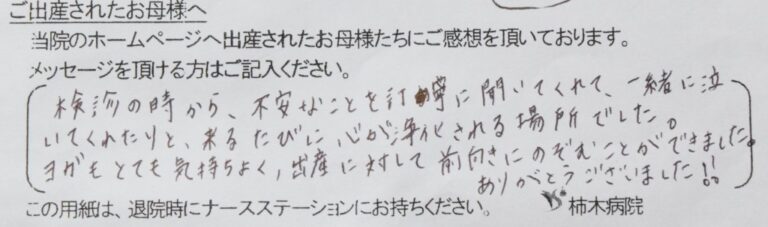 ご出産されたお母様へ
当院のホームページへ出産されたお母様たちにご感想を頂いております。
メッセージを頂ける方はご記入ください。
検診の時から、不安なことを訂寧に聞いてくれて、一緒に泣
いてくれたりと、来るたびに心が浄化される場所でした。
ヨガもとても気持ちよく、出産に対して前向きにのぞむことができました。
ありがとうございました!!
この用紙は、退院時にナースステーションにお持ちください。 柿木病院